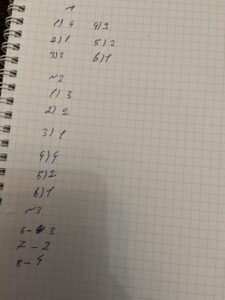 1
1) 4 4) 3
2) 1 5) 2
3) 2 6) 1
№2
1) 3
2) 2
3) 1
4) 4
5) 2
6) 1
№3
6 - 3
7 - 2
8 - 4